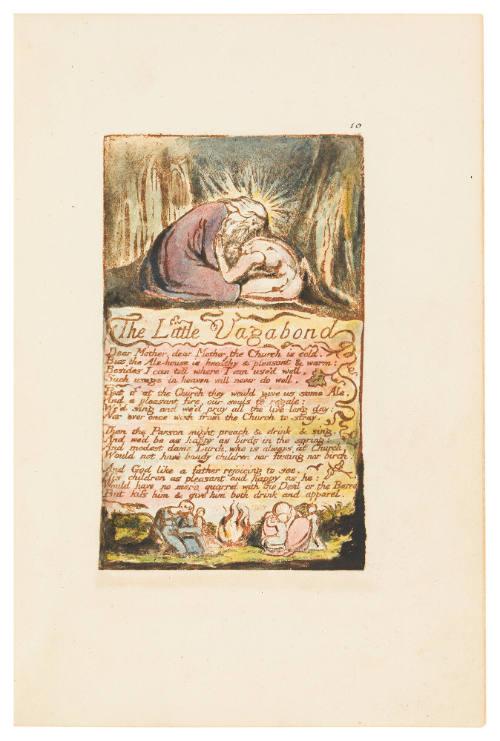 10
The Little Vagabond
Dear Mother, dear Mother, the Church is cold.
But the Ale-house is healthy & pleasant & warm;
Besides I can tell where I am use'd well,
Such usage in heaven will never do well.
But if at the Church they would give us some Ale.
And a pleasant fire, our souls to regale:
We'd sing and we'd pray all the live long day:
Nor ever once wish from the Church to stray.
Then the Parson might preach & drink & sing.
And we'd be as happy as birds in the spring:
And modest dame Lurch, who is always at Church
Would not have bandy children nor fasting nor birch.
And God like a father rejoicing to see,
His children as pleasant and happy as he:
Would have no more quarrel with the Devil or the Barrel
But kiss him & give him both drink and apparel.